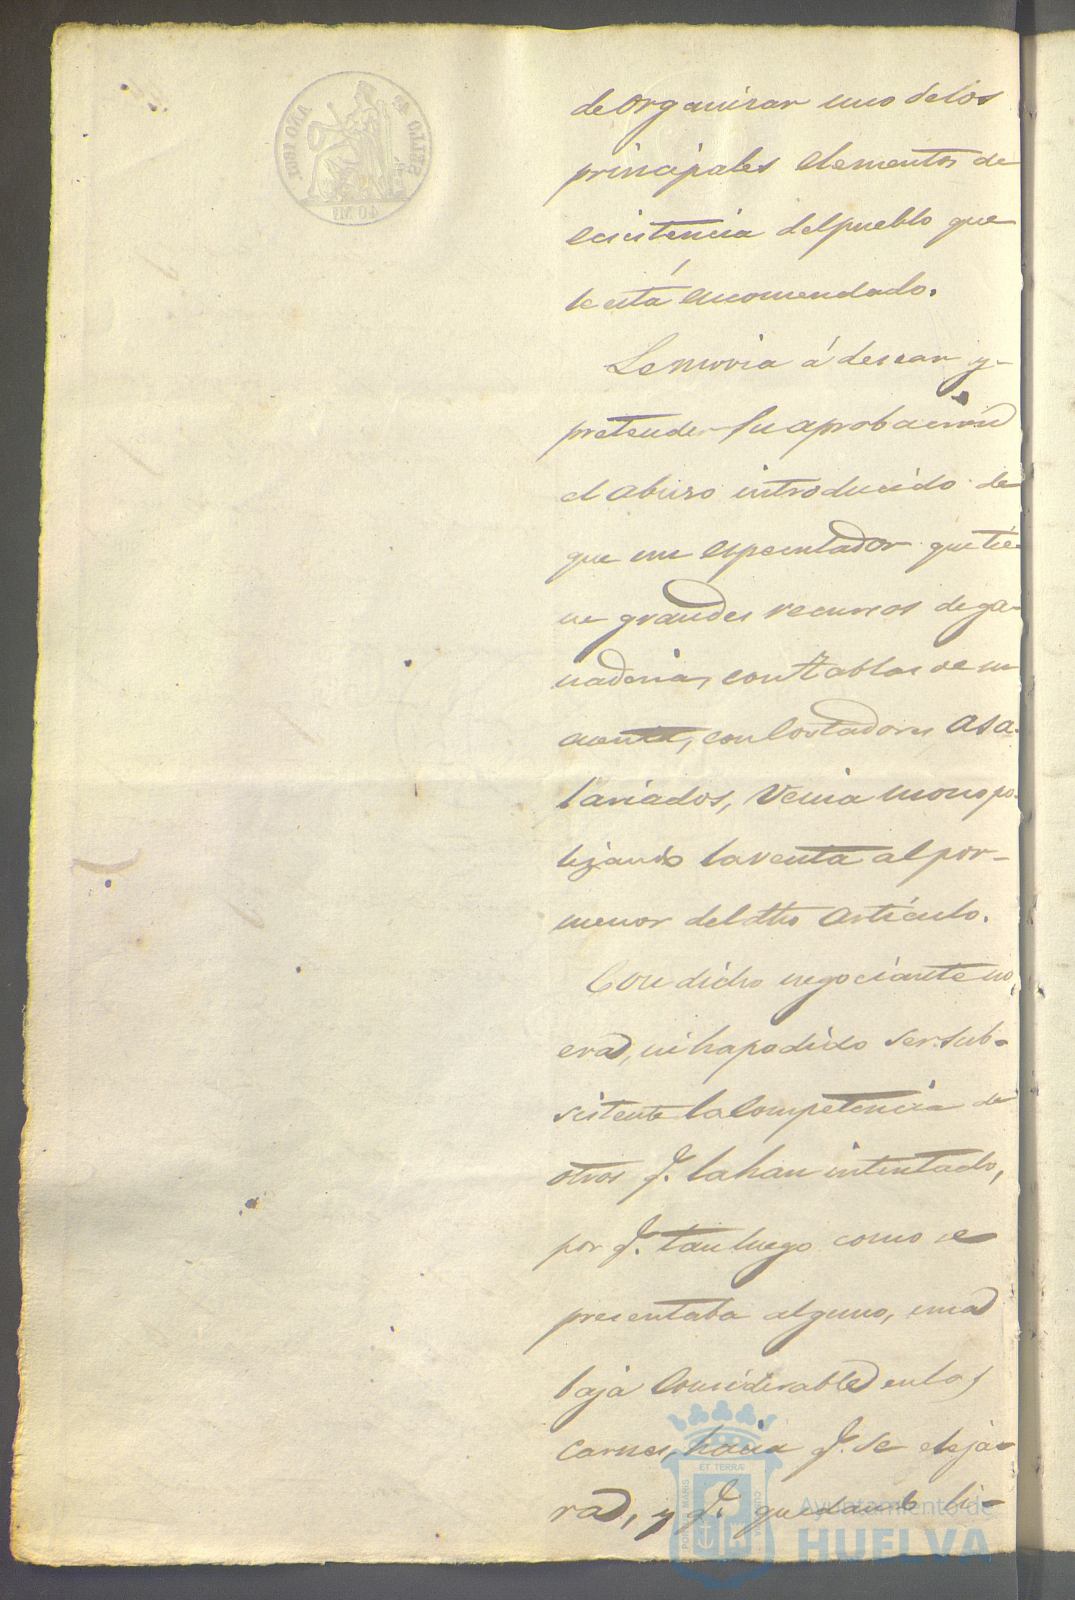 de organisar uno de los
principales elementos de
ecsistencia del pueblo que
le está encomendado.
Le movia á desear y
pretender su aprobacion
el abuso introducido de
que un especulador que tie-
ne grandes recursos de ga-
naderia, con tablas de su
cuenta, con cortadores asa-
lariados, venia monopo-
lizando la venta al por-
menor del dho articulo.
Con dicho negociante no
era, ni ha podido ser sub-
sistente la competencia de
otros q. la han intentado,
por q. tan luego como se
presentaba alguno, una
baja considerable en las
carnes, hacia q. se aleja-
ra, y q. quedando li-
SELLO
AÑO 1861.
40 MS
PORTUS MARIS
ET TERRÆ
CUSTODIA
Ayuntamiento de
HUELVA